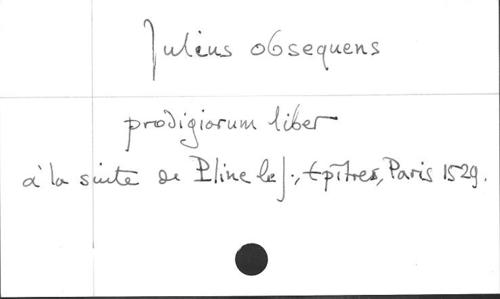 Julius obsequens
prodigiorum liber
à la suite de Pline le J., Epîtres, Paris 1529.